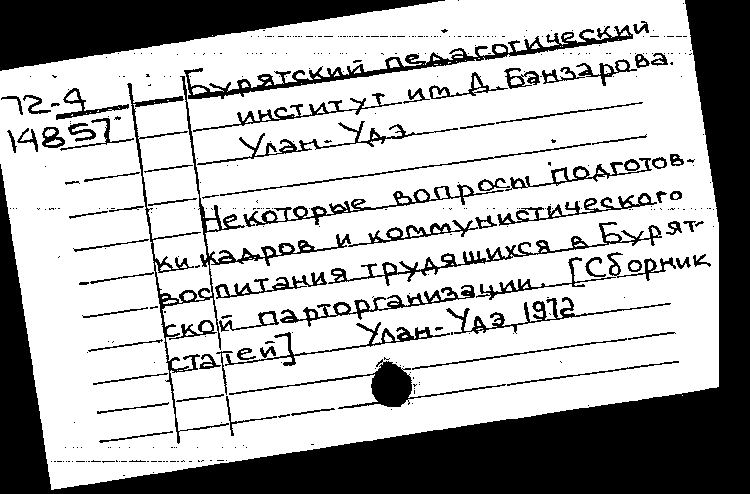 72-4
14857
Бурятский педагогический
институт им. Д. Банзарова.
Улан-Удэ.
Некоторые вопросы подготов-
ки кадров и коммунистического
воспитания трудящихся в Бурят
ской парторганизации. [Сборник
статей] Улан-Удэ, 1972